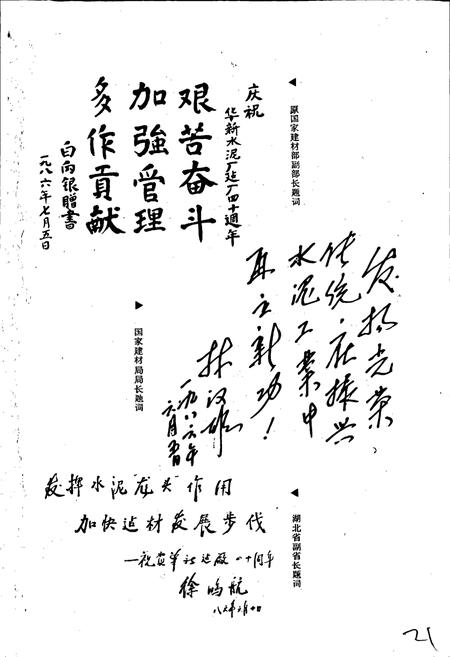 原国家建材部副部长题词
庆祝
华新水泥厂建厂四十週年
艰苦奋斗
加強管理
多作貢献
白向银贈書
一九八六年七月五日
发扬光荣
传统，在振兴
水泥工業中
再立新功！
林汉雄
一九八六年
国家建材局局长题词
发挥水泥"龙头"作用
加快建材发展步伐
徐鸣航
湖北省副省长题词
21